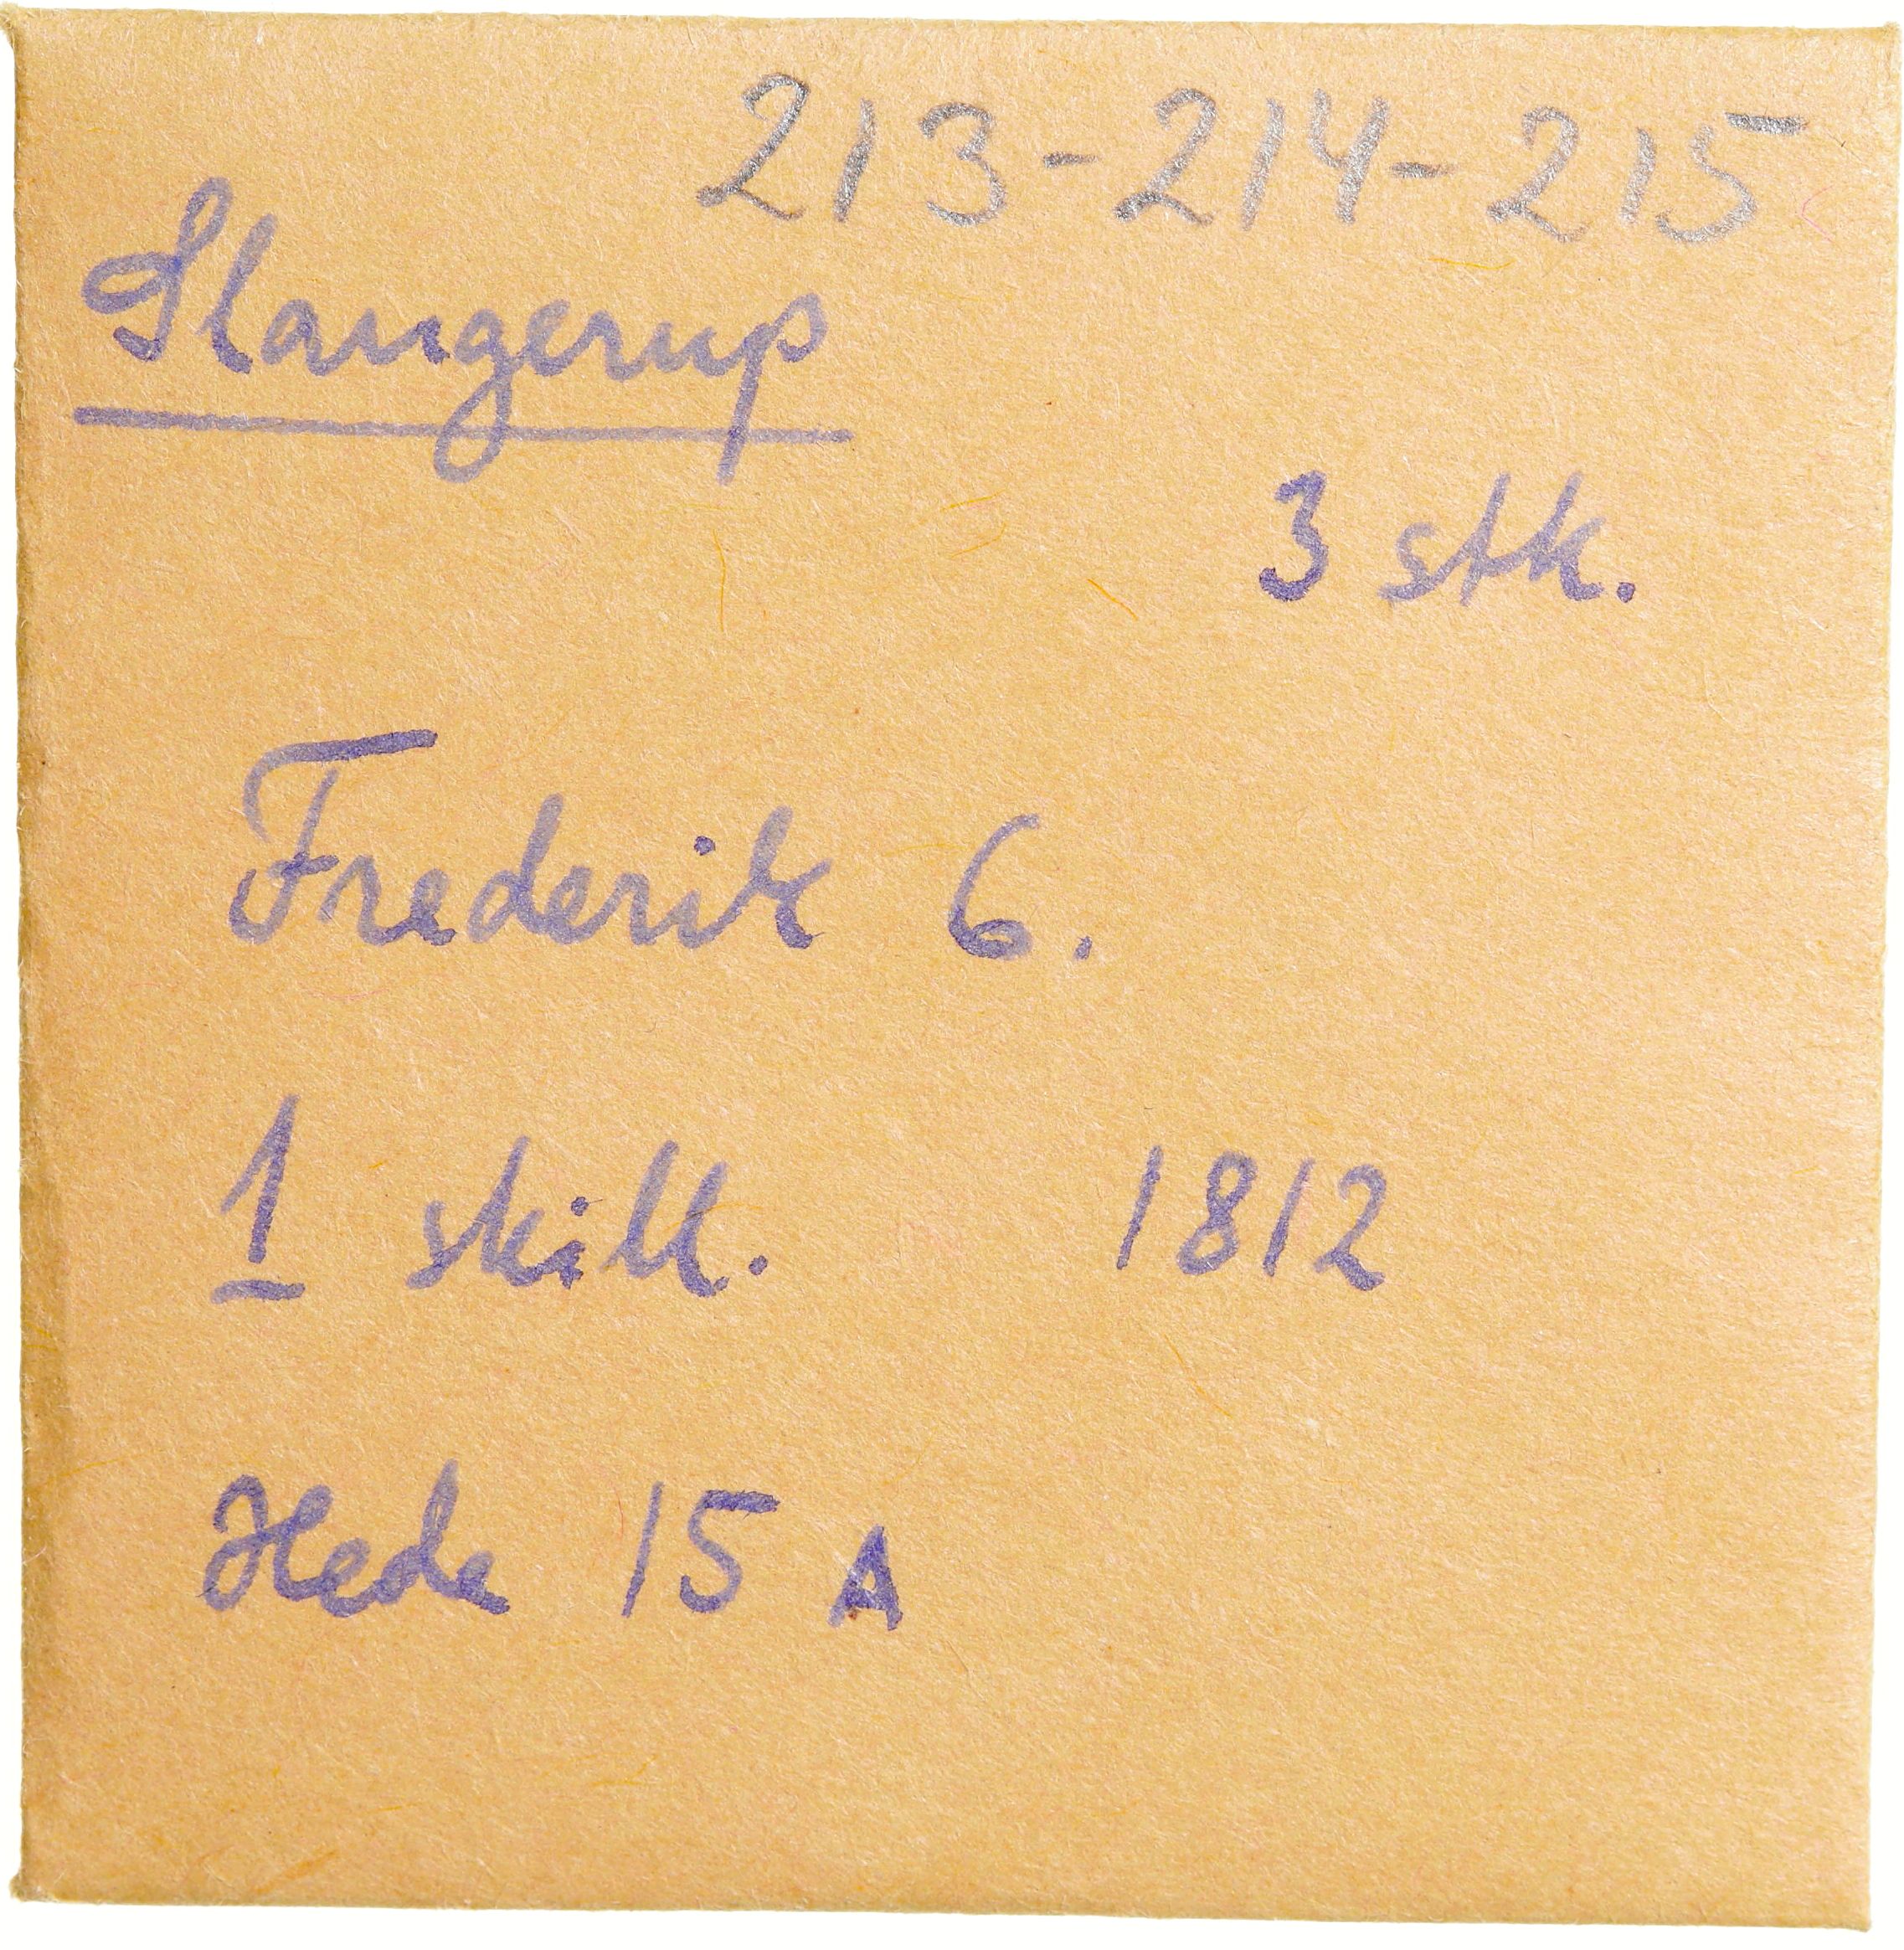 213-214-215
Slangerup
3 stk.
Frederik 6.
1 skill. 1812
Hede 15 A